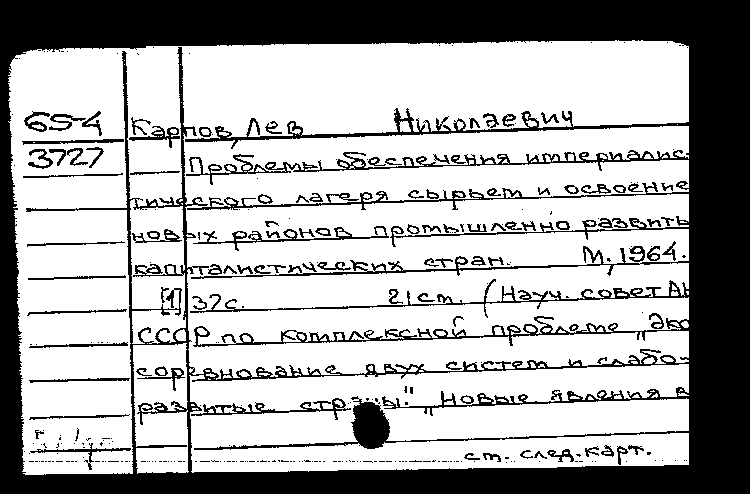 65-4 Карпов, Лев Николаевич
3727 Проблемы обеспечения империалис-
тического лагеря сырьем и освоение
новых районов промышленно развиты
капиталистических стран. М., 1964.
[1] 37с. 21 ст. (Науч. совет АН
СССР по комплексной проблеме „Эко
соревнование двух систем и слабо-
развитые страны." „Новые явления в
ст. след. карт.